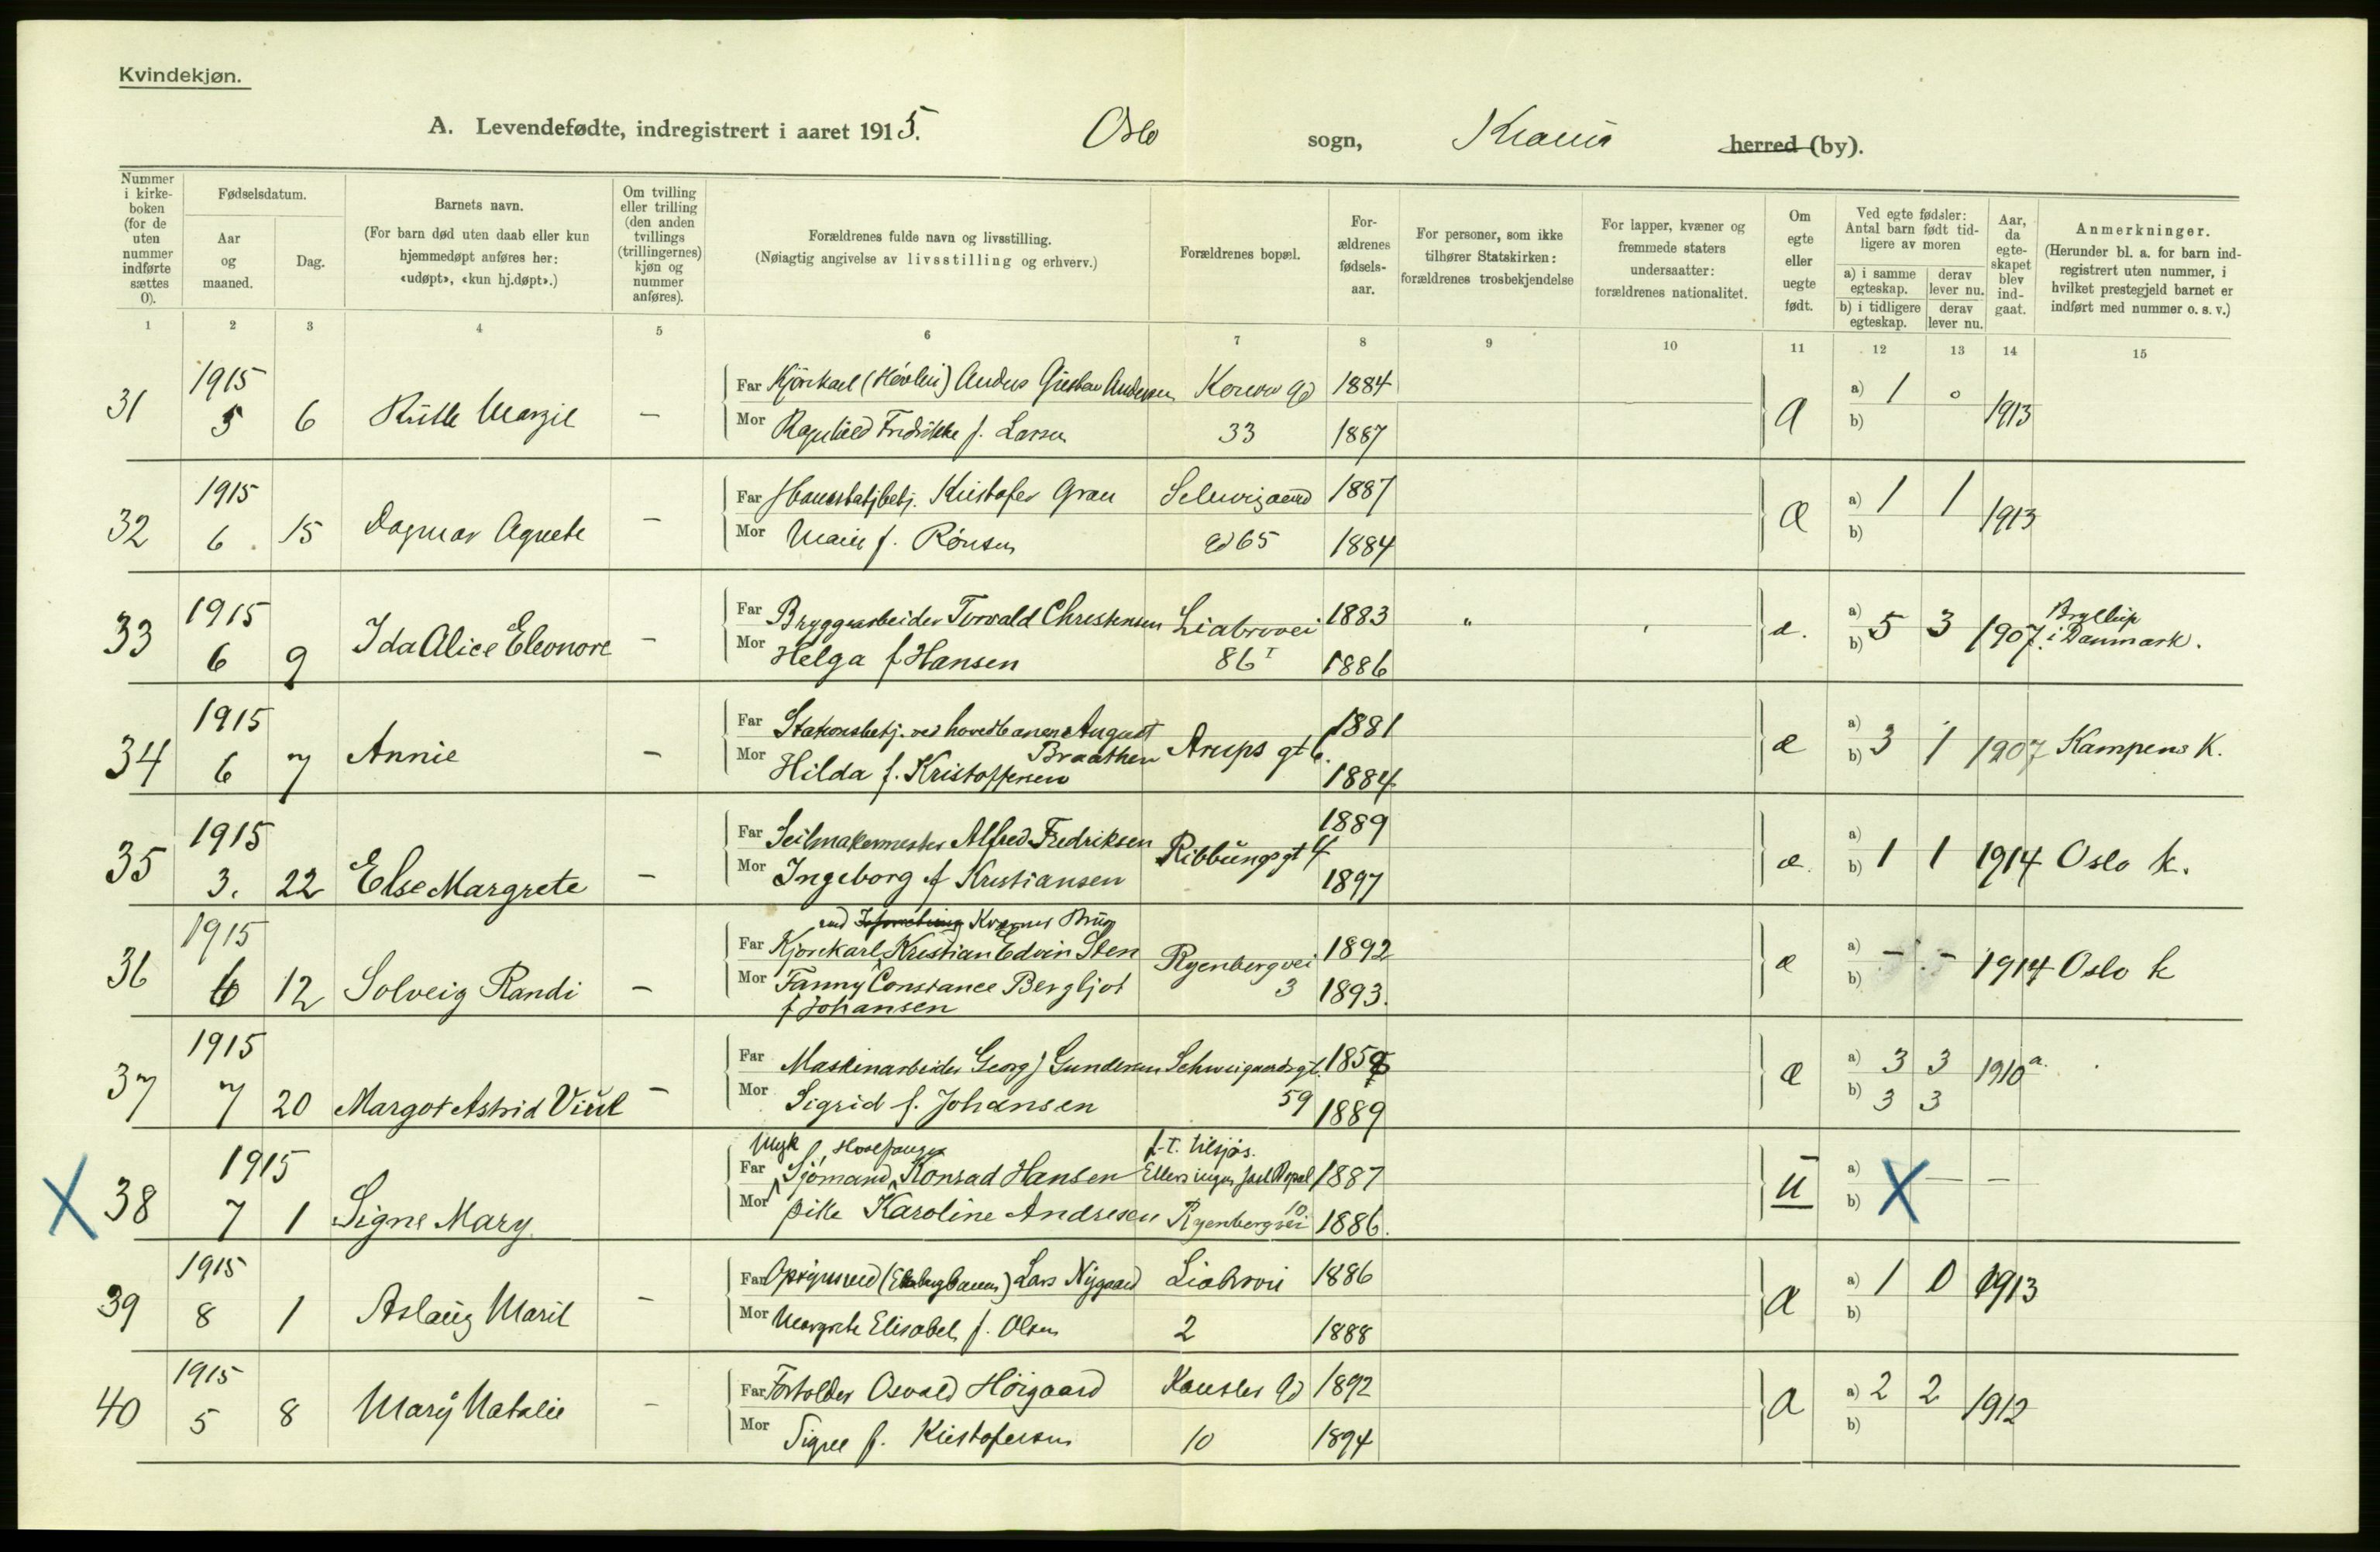 Kvindekjøn.
A. Levendefødte, indregistrert i aaret 1915. Oslo sogn, Krania herred (by).
Nummer i kirkeboken (for de uten nummer indførte sættes 0).
Fødselsdatum.
Aar og maaned.
Dag.
Barnets navn.
(For barn død uten daab eller kun hjemmedøpt anføres her: «udøpt», «kun hj.døpt».)
Om tvilling eller trilling (den anden tvillings (trillingernes) kjøn og nummer anføres).
Forældrenes fulde navn og livsstilling.
(Nøiagtig angivelse av livsstilling og erhverv.)
Forældrenes bopæl.
Forældrenes fødselsaar.
For personer, som ikke tilhører Statskirken: forældrenes trosbekjendelse
For lapper, kvæner og fremmede staters undersaatter: forældrenes nationalitet.
Om egte eller uegte født.
Ved egte fødsler: Antal barn født tidligere av moren
a) i samme egteskap. derav lever nu.
b) i tidligere egteskap. derav lever nu.
Aar, da egteskapet blev indgaat.
Anmerkninger.
(Herunder bl. a. for barn indregistrert uten nummer, i hvilket prestegjeld barnet er indført med nummer o. s. v.)
1 2 3 4 5 6 7 8 9 10 11 12 13 14 15
31 1915 5 6 Ruth Margit —
Far Kjørekarl (Høvleri) Anders Gustav Andersen 1884
Mor Ragnhild Fredrikke f. Larsen 33 1887
Æ a) 1 0 b) 1913
32 1915 6 15 Dagmar Agnete —
Far Kristofer Gran 1887
Mor Marie f. Rønsen 65 1884
Æ a) 1 1 b) 1913
33 1915 6 9 Ida Alice Eleonore —
Far Bryggearbeider Torvald Christensen Liabrovei 1883
Mor Helga f Hansen 86 I 1886
" æ. a) b) 5 3 1907. Bryllup i Danmark.
34 1915 6 7 Annie —
Far Stationsbetj. ved hovedbanen August Braathen Arups gt 6. 1881
Mor Hilda f. Kristoffersen 1884
æ a) b) 3 1 1907 Kampens K.
35 1915 3. 22 Else Margrete —
Far Seilmakermester Alfred Fredriksen Ribbungsgt 4 1889
Mor Ingeborg f Kristiansen 1897
æ. a) b) 1 1 1914 Oslo k.
36 1915 6 12 Solveig Randi —
ved Kværner Brug
Far Kjørekarl Kristian Edvin Sten Ryenbergvei 1892
Mor Fanny Constance Bergljot 3 1893.
f Johansen
æ a) - - b) 1914 Oslo k
37 1915 7 20 Margot Astrid Viül —
Far Maskinarbeider Georg J Gundersen Schweigaardsgt. 1859
Mor Sigrid f. Johansen 59 1889
Æ a) 3 3 b) 3 3 1910 a.
X 38 1915 7 1 Signe Mary
Ugk Hvalfanger f.t. tilsjøs.
Far Sjømand Konrad Hansen 1887
Mor pike Karoline Andresen Ryenbergvei 10. 1886.
u a) b) X — —
39 1915 8 1 Aslaug Marit —
Far Lars Nygaard Liabrovei 1886
Mor Margrete Elisabet f. Olsen 2 1888
Æ a) 1 0 b) 1913
40 1915 5 8 Mary Natalie —
Far Forvolder Osvald Høigaard Kansler Gd 1892
Mor Signe f. Kristofersen 10 1894
Æ a) 2 2 b) 1912